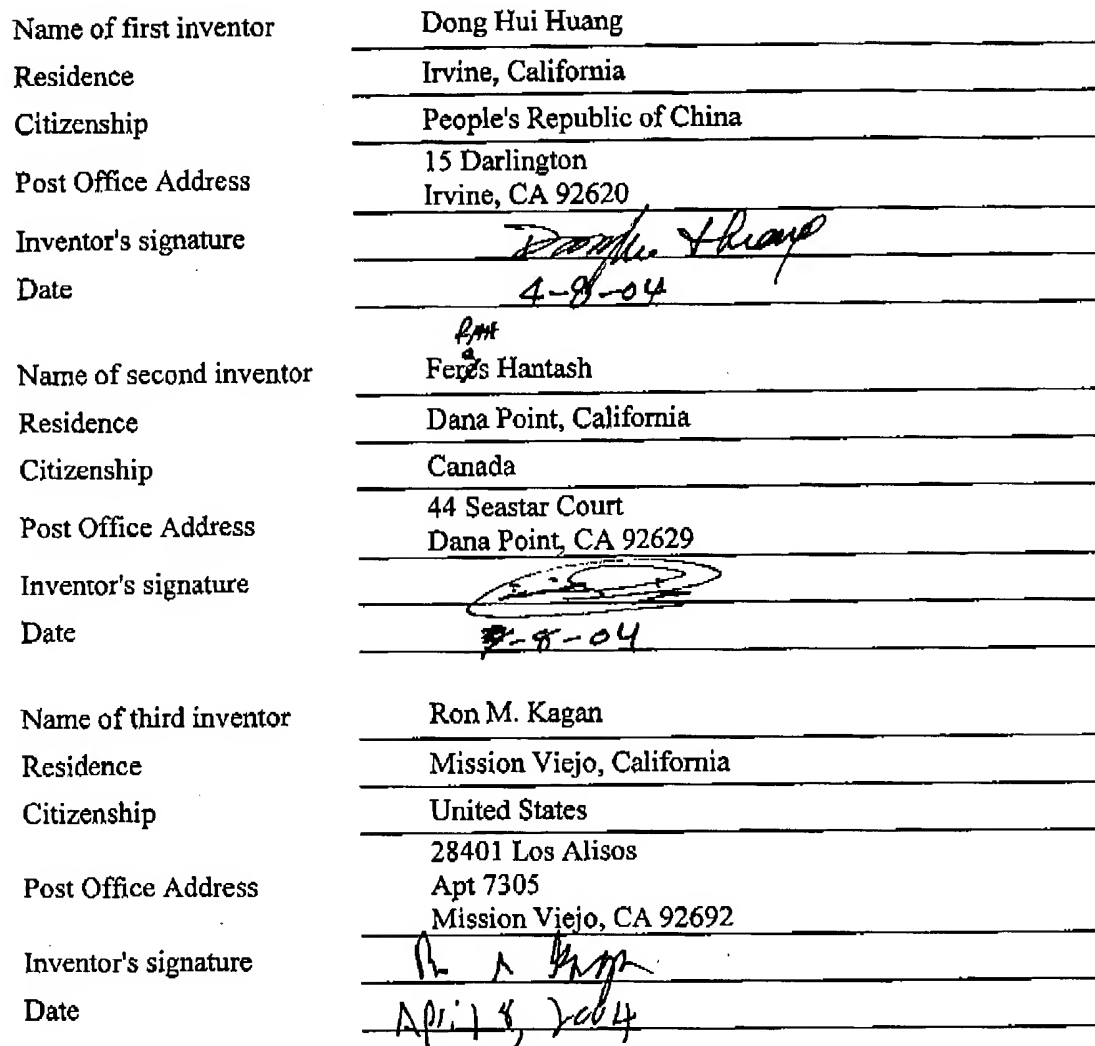 Name of first inventor Dong Hui Huang
Residence Irvine, California
Citizenship People's Republic of China
Post Office Address 15 Darlington
Irvine, CA 92620
Inventor's signature
Date 4-8-04
Name of second inventor Feras Hantash
Residence Dana Point, California
Citizenship Canada
Post Office Address 44 Seastar Court
Dana Point, CA 92629
Inventor's signature
Date -8-04
Name of third inventor Ron M. Kagan
Residence Mission Viejo, California
Citizenship United States
28401 Los Alisos
Post Office Address Apt 7305
Mission Viejo, CA 92692
Inventor's signature
Date April 8, 2004